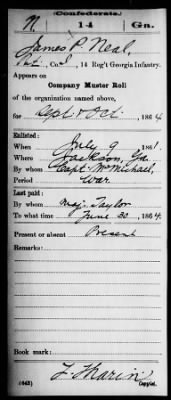 (Confederate.)
N. 14 Ga.
James P. Neal,
Co. I, 14 Reg't Georgia Infantry.
Appears on
Company Muster Roll
of the organization named above,
for Sept & Oct, 1864
Enlisted:
When July 9, 1861
Where Jackson, Ga.
By whom Capt McMichael,
Period War
Last paid:
By whom Maj. Taylor
To what time June 30, 1864
Present or absent Present
Remarks:
Book mark:
(642) Copyist.